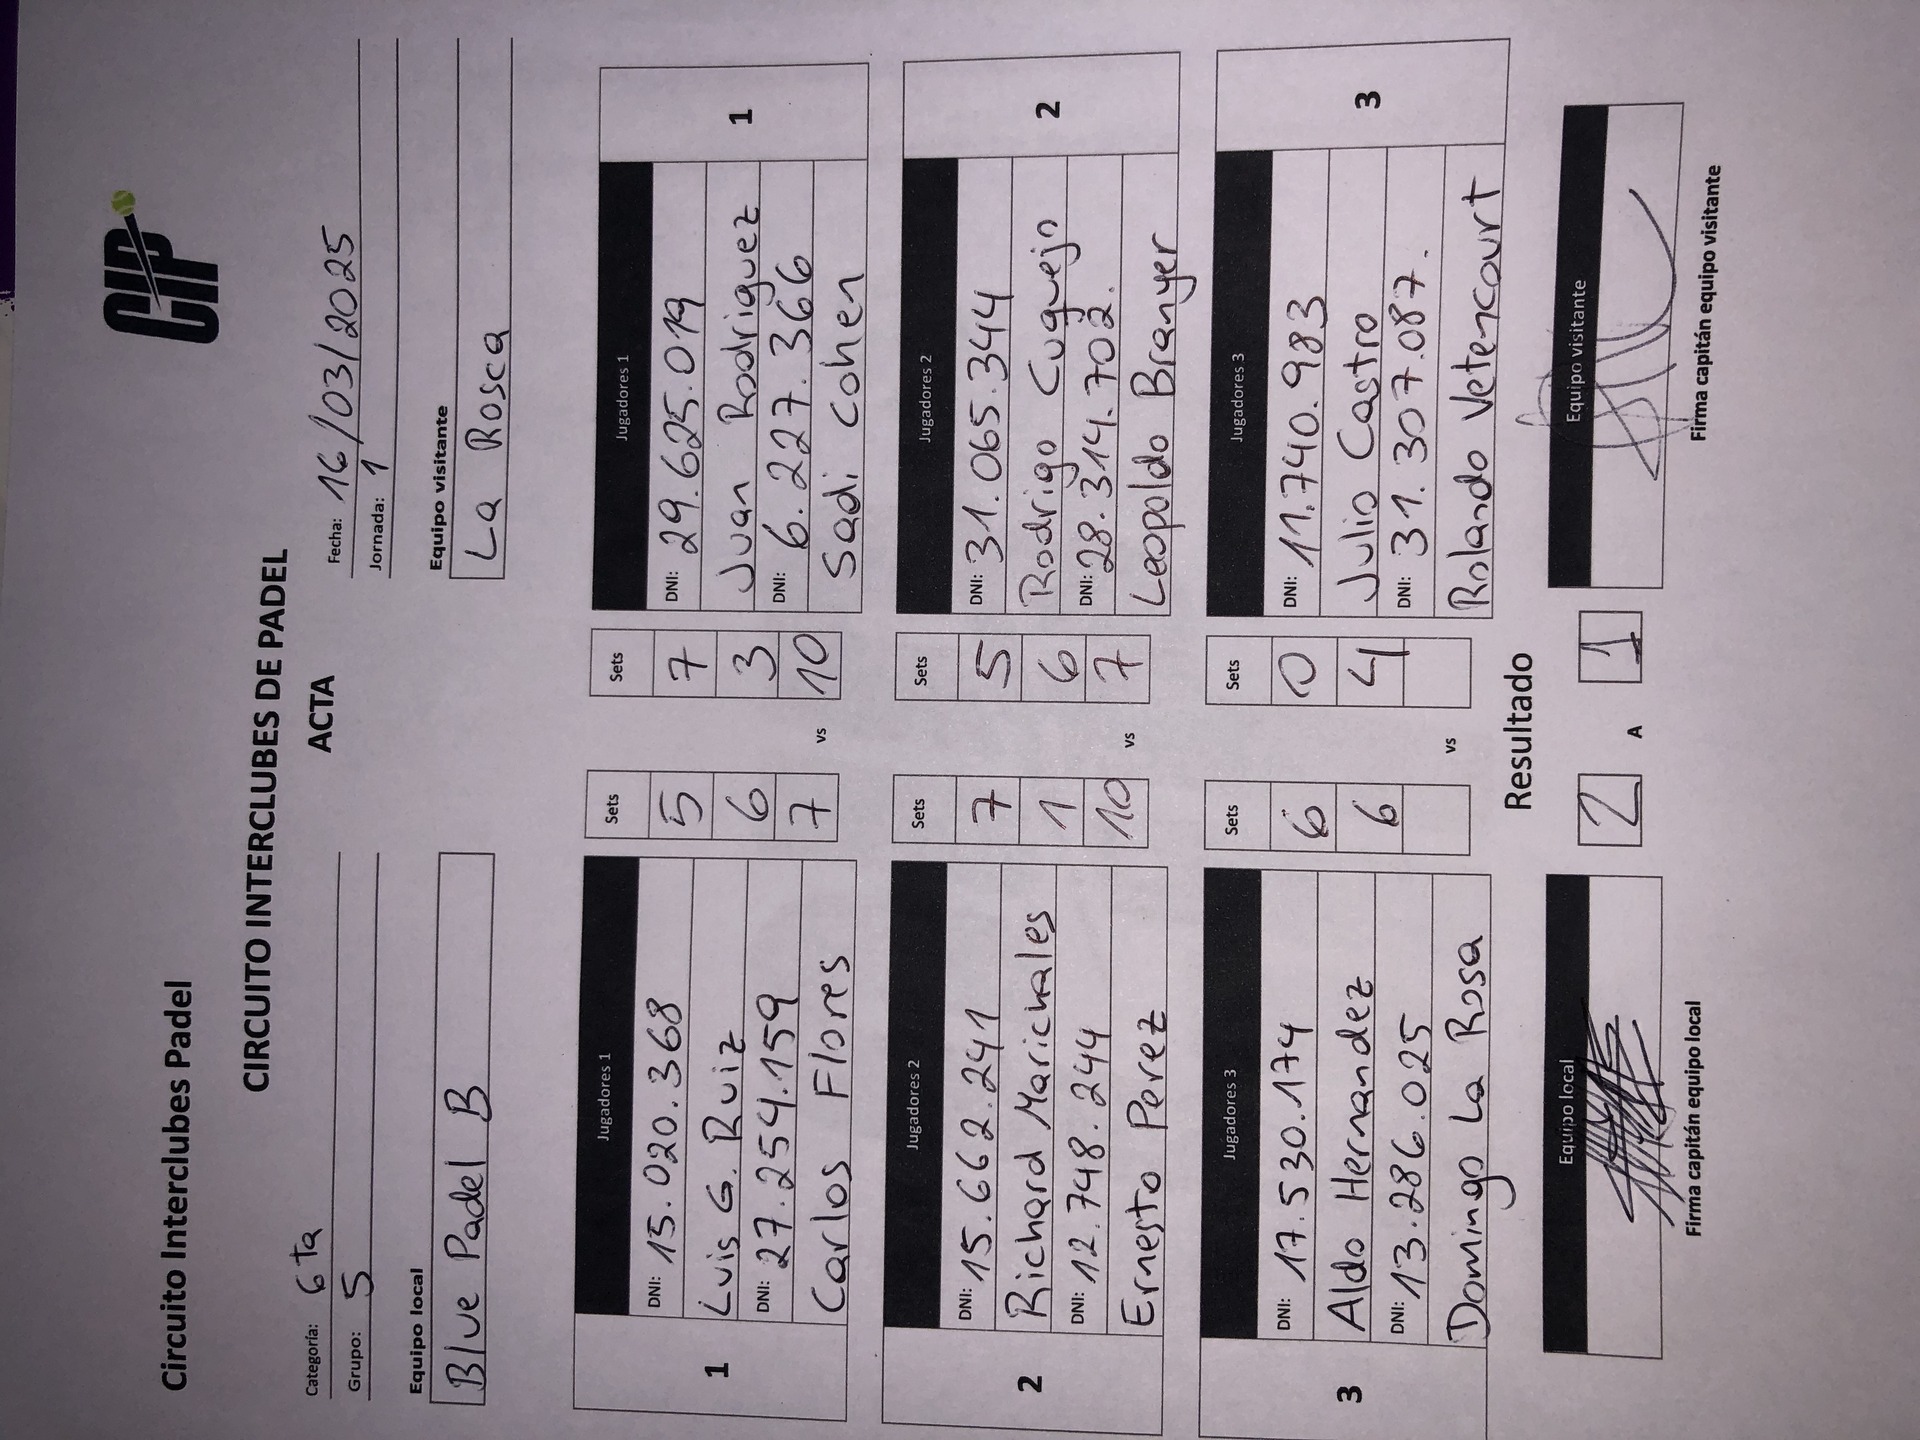 Circuito Interclubes Padel
CIP
CIRCUITO INTERCLUBES DE PADEL
ACTA
Categoría: 6ta
Fecha: 16/03/2025
Grupo: 5
Jornada: 1
Equipo local
Equipo visitante
Blue Padel B
La Rosca
Jugadores 1
Sets
Sets
Jugadores 1
DNI: 15.020.368
5
7
DNI: 29.625.019
Luis G. Ruiz
6
3
Juan Rodriguez
1
1
DNI: 27.254.159
7
10
DNI: 6.227.366
Carlos Flores
vs
Sadi Cohen
Jugadores 2
Sets
Sets
Jugadores 2
DNI: 15.662.241
7
5
DNI: 31.065.344
Richard Marichales
1
6
Rodrigo Cuguejo
2
2
DNI: 12.748.244
10
7
DNI: 28.314.702.
Ernesto Perez
vs
Leopoldo Branyer
Jugadores 3
Sets
Sets
Jugadores 3
DNI: 17.530.174
6
0
DNI: 11.740.983
Aldo Hernandez
6
4
Julio Castro
3
3
DNI: 13.286.025
DNI: 31.307.087.
Domingo La Rosa
vs
Rolando Vetencourt
Resultado
Equipo local
Equipo visitante
2 A 1
Firma capitán equipo local
Firma capitán equipo visitante